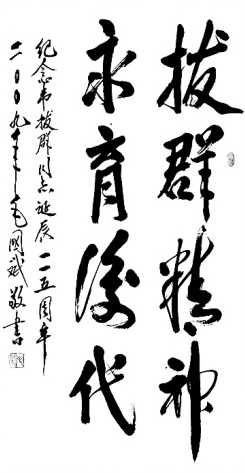 拔群精神
永育後代
纪念韦拔群同志诞辰一一五周年
二〇〇九年毛國斌敬書